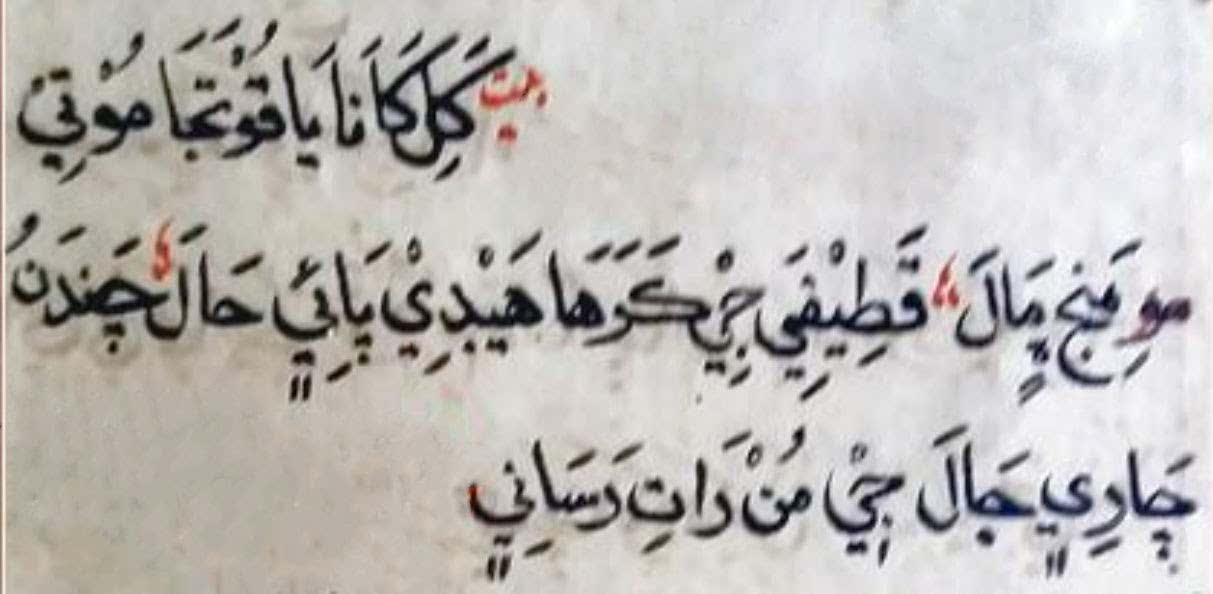 بيت كَلِ كَانَا يَاقُوْتجَا مُوْتِيْ
مو مَنجِ مَالَ قَطِيْفِيَ جِيْ كَرَهَا هَيْدِيْ پَائِيِ حَالَ چَندَنُ
چَارِيِ جَالَ جِيْ مُنْ رَاتِ رَسَانِيِ